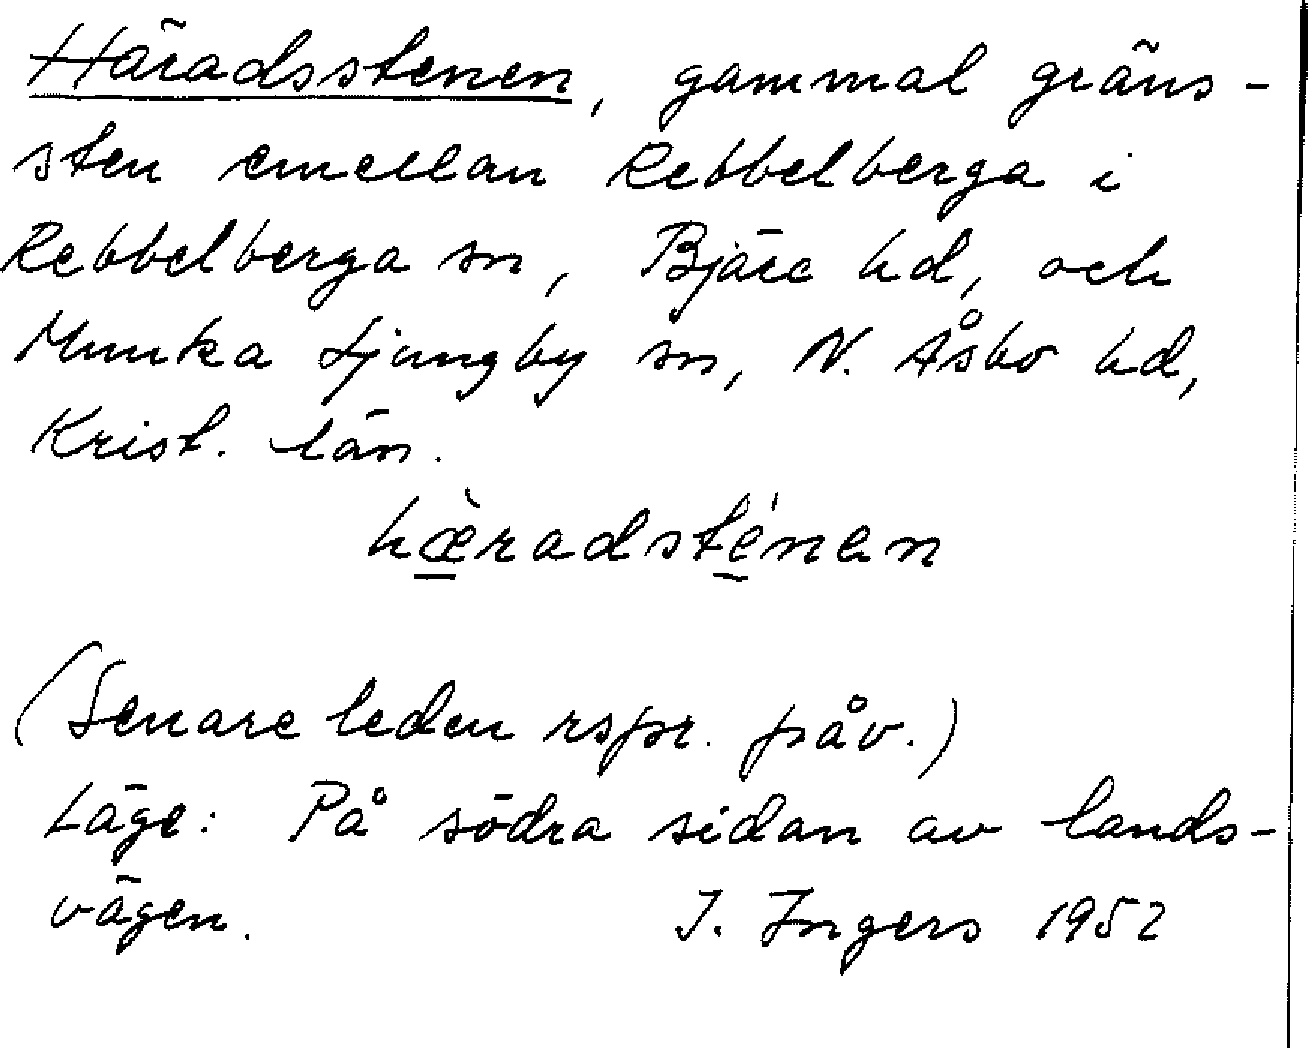 Häradsstenen, gammal gräns-
sten emellan Rebbelberga i
Rebbelberga sn, Bjäre hd, och
Munka Ljungby sn, N. Åsbo hd,
Krist. län.
hæ̀radsténen
(Senare leden rspr. påv.)
Läge: På södra sidan av lands-
vägen. I. Ingers 1952